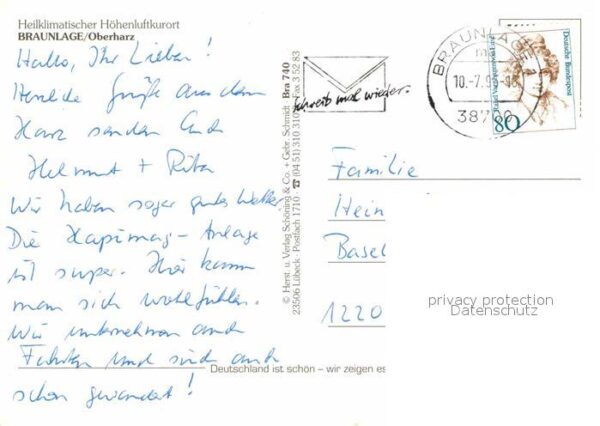 Heilklimatischer Höhenluftkurort
BRAUNLAGE/Oberharz
Hallo, Ihr Lieben!
Grüße aus dem
Harz senden Euch
Helmut + Rita
Wir haben sogar gutes Wetter.
Die Hapimag-Anlage
ist super. Hier kann
man sich wohlfühlen.
Wir unternehmen auch
Fahrten und sind auch
schon gewandert!
© Herst. u. Verlag Schöning & Co. + Gebr. Schmidt Bra 740
23506 Lübeck · Postfach 1710 · ☎ (04 51) 310 310 Fax 3 52 83
Deutschland ist schön – wir zeigen es
schreib mal wieder.
BRAUNLAGE
10.-7.9
387
Deutsche Bundespost
80
Familie
Hein
Basel
1220
privacy protection
Datenschutz